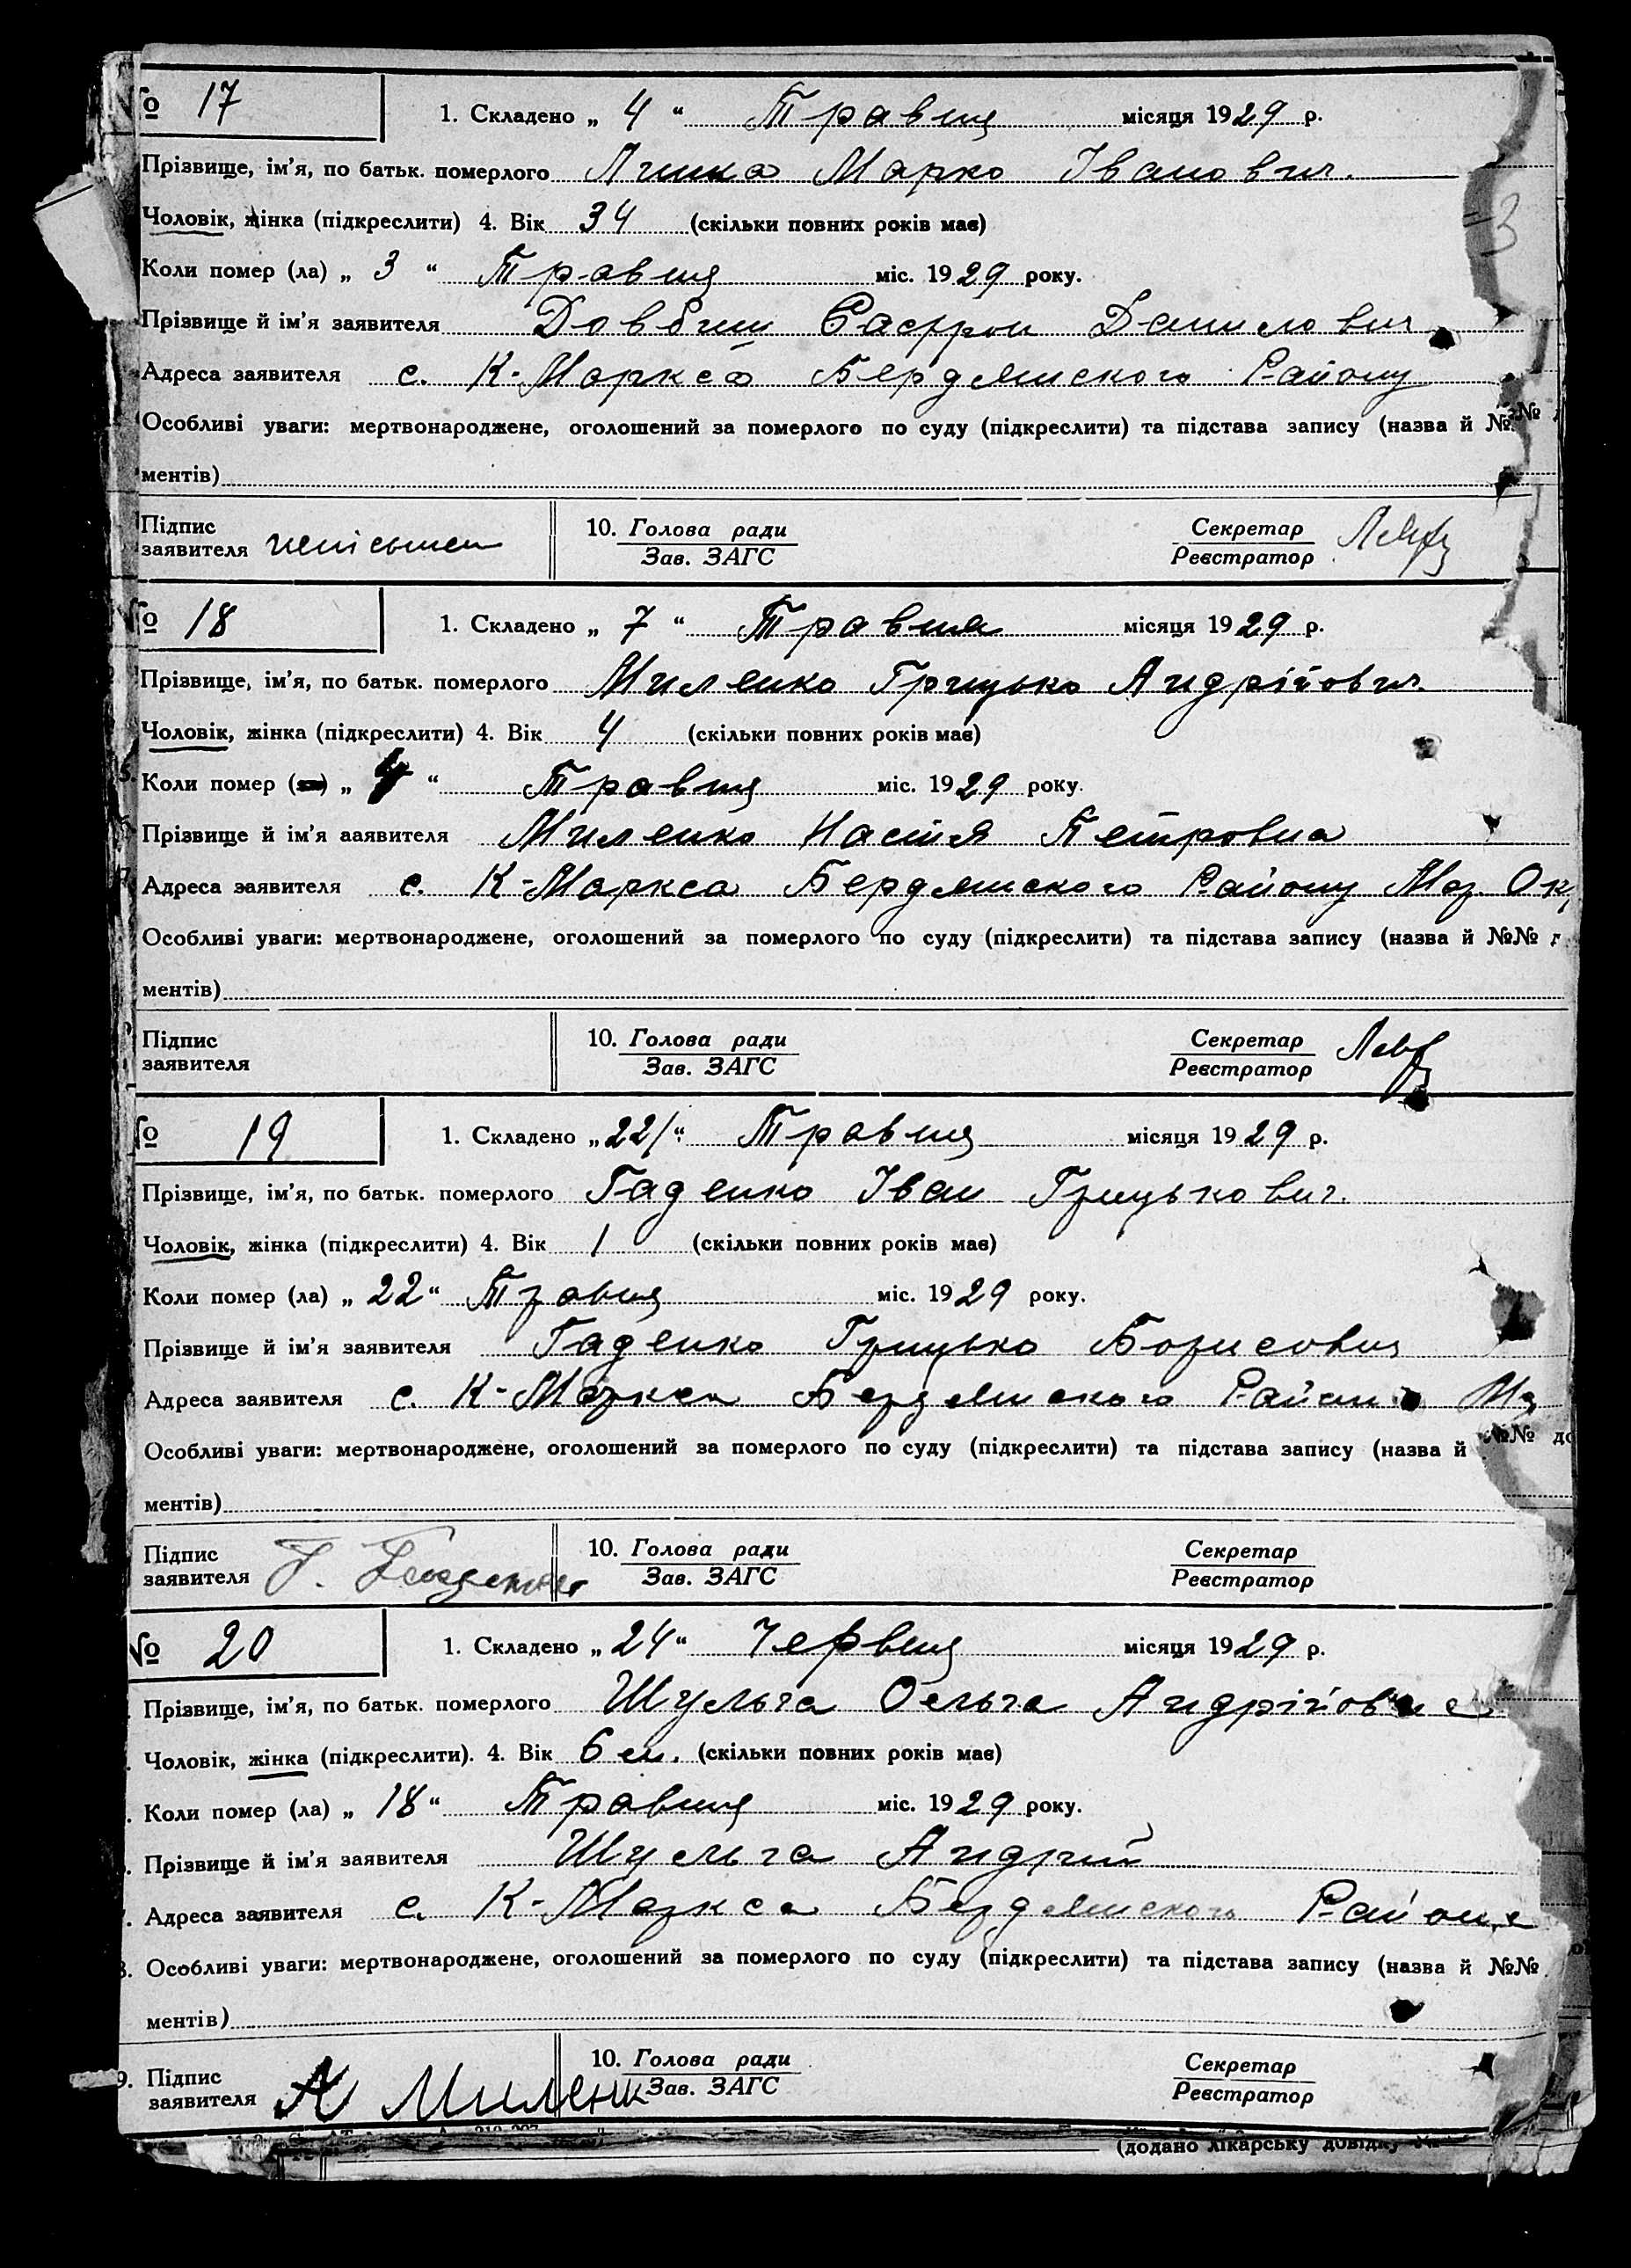 № 17
1. Складено „ 4 “ Травня місяця 1929 р.
Прізвище, ім’я, по батьк. померлого Марко Іванович.
Чоловік, жінка (підкреслити) 4. Вік 34 (скільки повних років має)
Коли помер (ла) „ 3 “ Травня міс. 1929 року.
Прізвище й ім’я заявителя Довбиш Данилович
Адреса заявителя с. К-Маркса Бердянського Району
Особливі уваги: мертвонароджене, оголошений за померлого по суду (підкреслити) та підстава запису (назва й №№
ментів)
Підпис заявителя неписьмен 10. Голова ради Зав. ЗАГС Секретар Реєстратор
№ 18
1. Складено „ 7 “ Травня місяця 1929 р.
Прізвище, ім’я, по батьк. померлого Миленко Грицько Андрійович.
Чоловік, жінка (підкреслити) 4. Вік 4 (скільки повних років має)
Коли помер „ 4 “ Травня міс. 1929 року.
Прізвище й ім’я ааявителя Миленко Настя Петровна
Адреса заявителя с. К-Маркса Бердянського Району Мар. Ок
Особливі уваги: мертвонароджене, оголошений за померлого по суду (підкреслити) та підстава запису (назва й №№
ментів)
Підпис заявителя 10. Голова ради Зав. ЗАГС Секретар Реєстратор
№ 19
1. Складено „ 22/ “ Травня місяця 1929 р.
Прізвище, ім’я, по батьк. померлого Гаденко Іван Грицькович.
Чоловік, жінка (підкреслити) 4. Вік 1 (скільки повних років має)
Коли помер (ла) „ 22 “ Травня міс. 1929 року.
Прізвище й ім’я заявителя Гаденко Грицько Борисович
Адреса заявителя с. К-Маркса Бердянського Району
Особливі уваги: мертвонароджене, оголошений за померлого по суду (підкреслити) та підстава запису (назва й №№ до
ментів)
Підпис заявителя Г. Гаденко 10. Голова ради Зав. ЗАГС Секретар Реєстратор
№ 20
1. Складено „ 24 “ Червня місяця 1929 р.
Прізвище, ім’я, по батьк. померлого Шульга Ольга Андрійовна
Чоловік, жінка (підкреслити). 4. Вік 6 м. (скільки повних років має)
Коли помер (ла) „ 18 “ Травня міс. 1929 року.
Прізвище й ім’я заявителя Шульга Андрій
7. Адреса заявителя с. К-Маркса Бердянського Району
8. Особливі уваги: мертвонароджене, оголошений за померлого по суду (підкреслити) та підстава запису (назва й №№
ментів)
9. Підпис заявителя А Миленк 10. Голова ради Зав. ЗАГС Секретар Реєстратор
(додано лікарську довідку